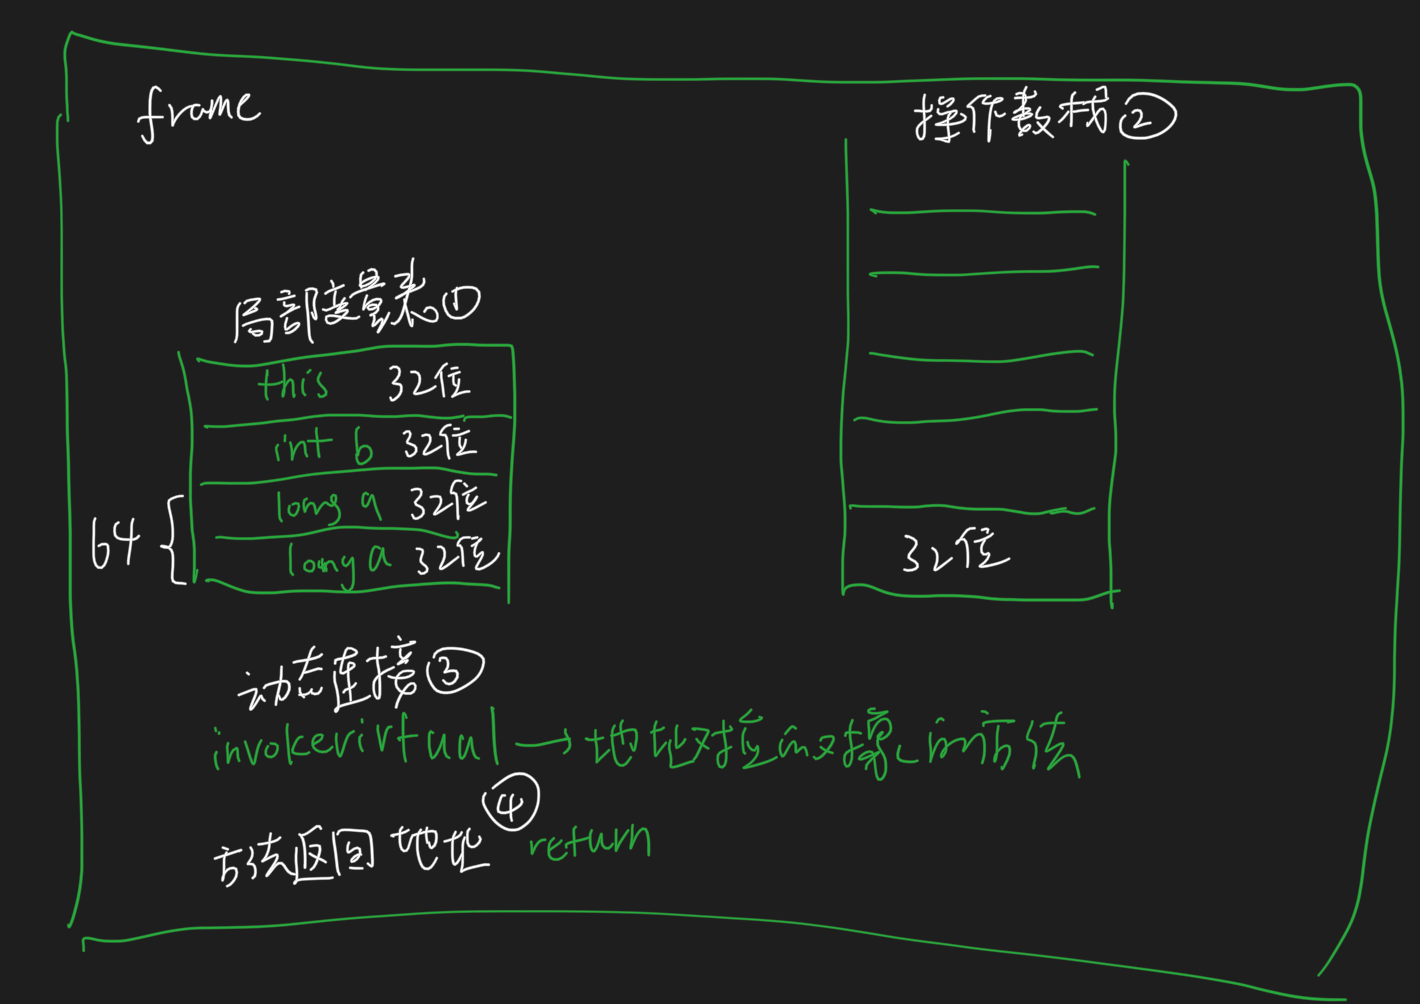 frame
操作数栈②
局部变量表①
this 32位
int b 32位
long a 32位
long a 32位
64
32位
动态连接③
invokevirtual → 地址对应的 的方法
方法返回地址④ return